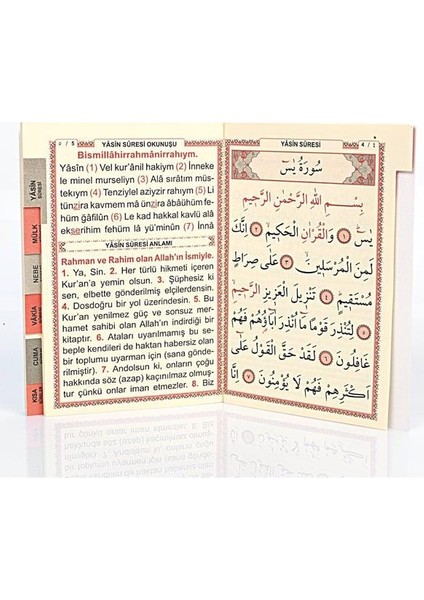 YÂSİN SÛRESİ OKUNUŞU
Bismillâhirrahmânirrahıym.
Yâsîn (1) Vel kur'ânil hakiym (2) İnneke
le minel murseliyn (3) Alâ sırâtım müs-
tekıym (4) Tenziylel aziyzir rahıym (5) Li
tünzira kavmem mâ ünzira âbâühüm fe-
hüm ğâfilûn (6) Le kad hakkal kavlü alâ
ekserihim fehüm lâ yü'minûn (7) İnnâ
YÂSİN SÛRESİ ANLAMI
Rahman ve Rahim olan Allah'ın İsmiyle.
1. Ya, Sin. 2. Her türlü hikmeti içeren
Kur'an'a yemin olsun. 3. Şüphesiz ki
sen, elbette gönderilmiş elçilerdensin.
4. Dosdoğru bir yol üzerindesin. 5. Bu
Kur'an yenilmez güç ve sonsuz mer-
hamet sahibi olan Allah'ın indirdiği bir
kitaptır. 6. Ataları uyarılmamış bu se-
beple kendileri de haktan habersiz olan
bir toplumu uyarman için (sana gönde-
rilmiştir). 7. Andolsun ki, onların çoğu
hakkında söz (azap) kaçınılmaz olmuş-
tur çünkü onlar iman etmezler. 8. Biz
YÂSİN
MÜLK
NEBE
VÂKIA
CUMA
KISA
YÂSİN SÛRESİ
4 / ٤
سُورَةُ يٰسٓ
بِسْمِ اللّٰهِ الرَّحْمٰنِ الرَّحٖيمِ
يٰسٓ ﴿١﴾ وَالْقُرْاٰنِ الْحَكٖيمِ ﴿٢﴾ اِنَّكَ
لَمِنَ الْمُرْسَلٖينَ ﴿٣﴾ عَلٰى صِرَاطٍ
مُسْتَقٖيمٍ ﴿٤﴾ تَنْزٖيلَ الْعَزٖيزِ الرَّحٖيمِ ﴿٥﴾
لِتُنْذِرَ قَوْمًا مَٓا اُنْذِرَ اٰبَٓاؤُهُمْ فَهُمْ
غَافِلُونَ ﴿٦﴾ لَقَدْ حَقَّ الْقَوْلُ عَلٰٓى
اَكْثَرِهِمْ فَهُمْ لَا يُؤْمِنُونَ ﴿٧﴾ اِنَّا